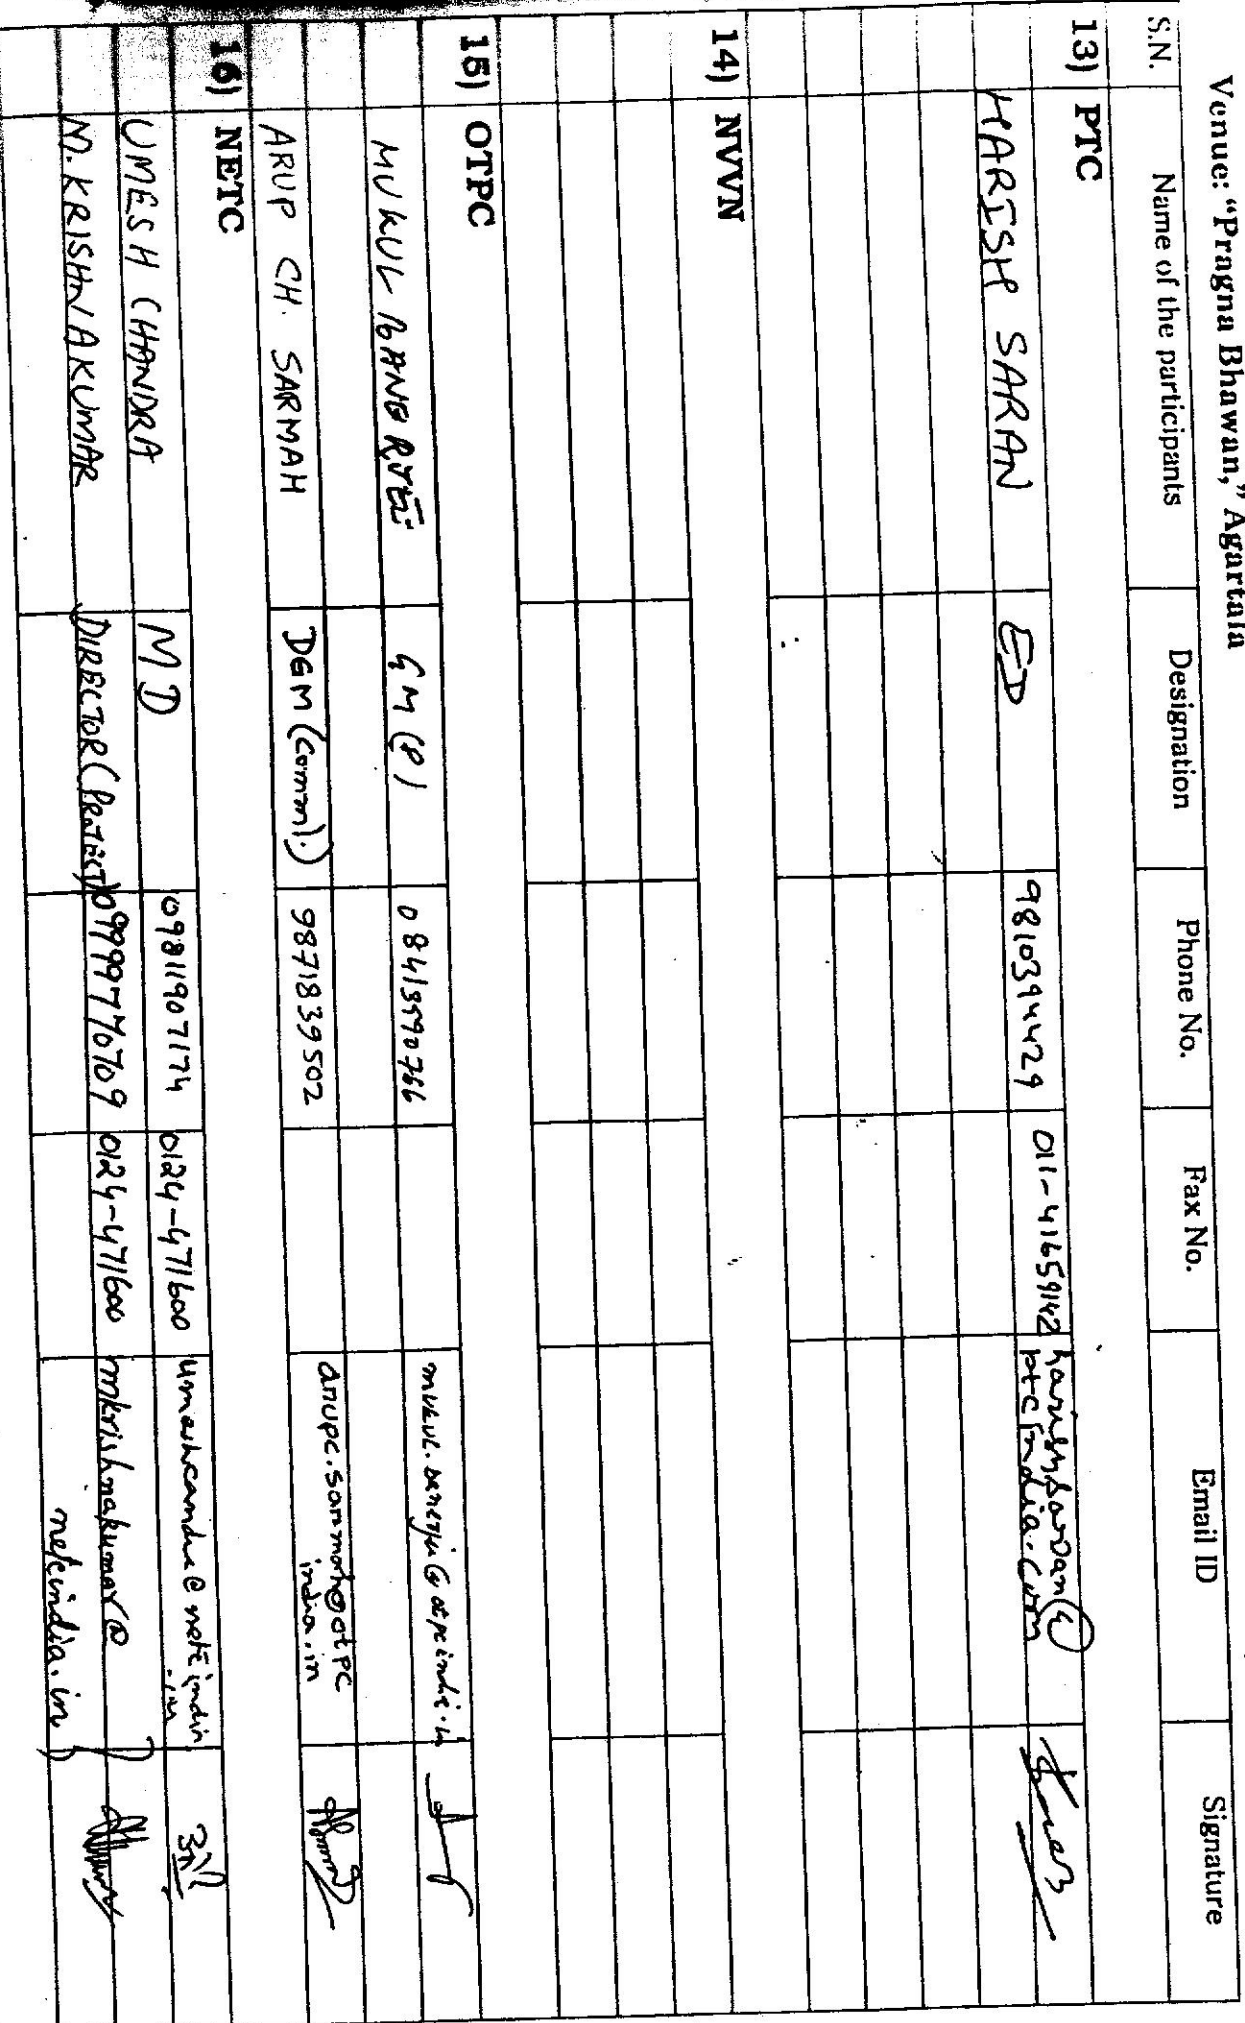 Venue: “Pragna Bhawan,” Agartala
S.N. Name of the participants Designation Phone No. Fax No. Email ID Signature
13) PTC
HARISH SARAN ED 9810394429 011-41659142 harishsaran@
ptcindia.com
14) NVVN
15) OTPC
MUKUL BANERJEE GM (P) 08413590766 mukul.banerjee@otpcindia.in
ARUP CH. SARMAH DGM (Comml.) 9871839502 arupc.sarmah@otpc
india.in
16) NETC
UMESH CHANDRA MD 09811907174 0124-4771600 umeshcandra@netcindia
.in
M. KRISHNAKUMAR DIRECTOR (PROJECT) 09999770709 0124-4771600 mkrishnakumar@
netcindia.in